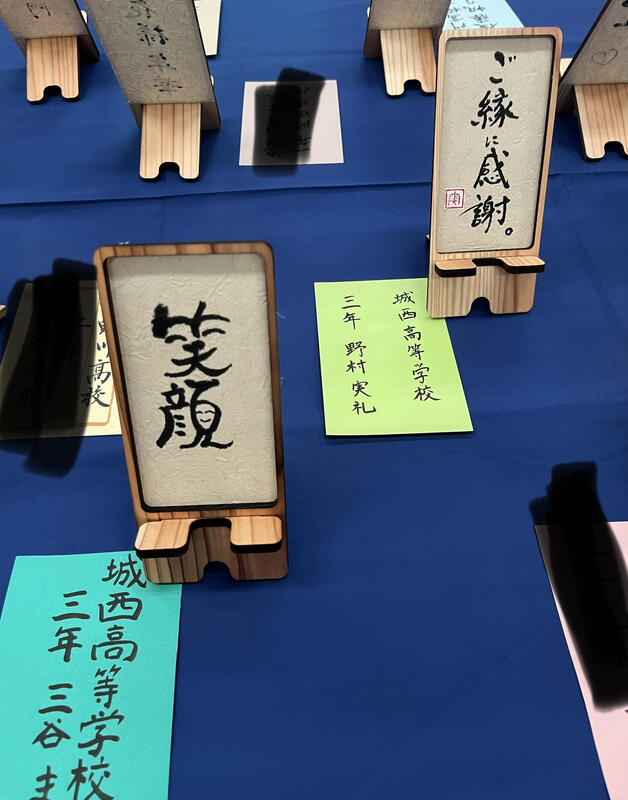 ご縁に感謝。
実
城西高等学校
三年 野村実礼
笑顔
高校
城西高等学校
三年 三谷ま